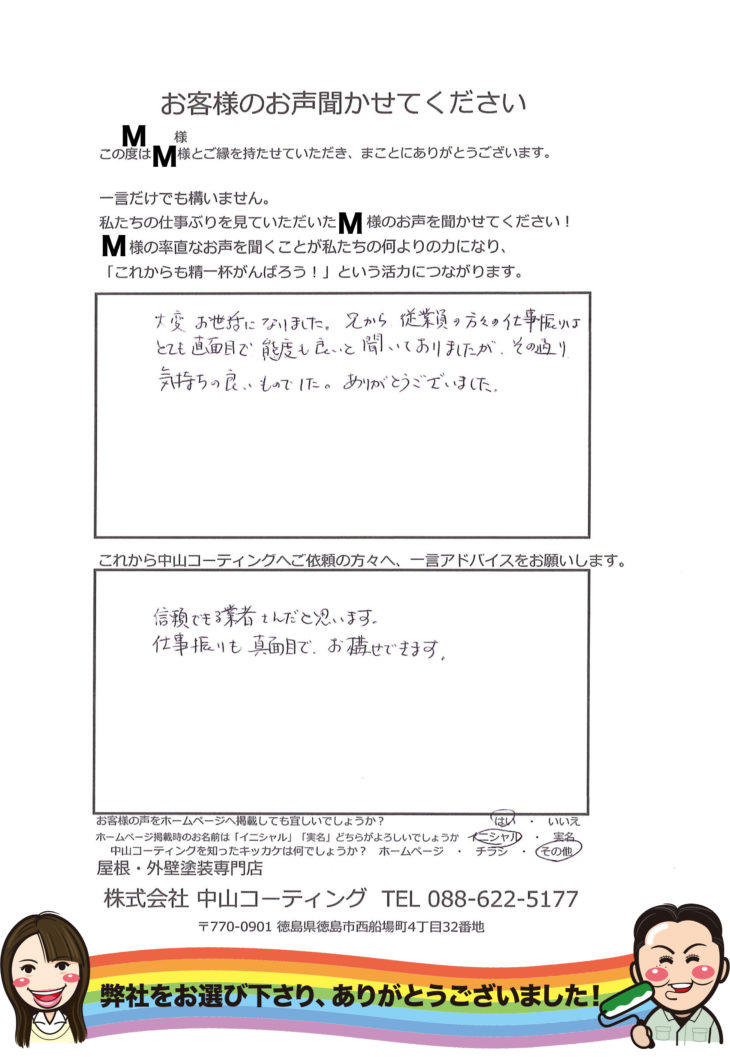 お客様のお声聞かせてください
M 様
この度はM様とご縁を持たせていただき、まことにありがとうございます。
一言だけでも構いません。
私たちの仕事ぶりを見ていただいたM様のお声を聞かせてください！
M様の率直なお声を聞くことが私たちの何よりの力になり、
「これからも精一杯がんばろう！」という活力につながります。
大変お世話になりました。兄から従業員の方々の仕事振りは
とても真面目で態度も良いと聞いておりましたが、その通り
気持ちの良いものでした。ありがとうございました。
これから中山コーティングへご依頼の方々へ、一言アドバイスをお願いします。
信頼できる業者さんだと思います。
仕事振りも真面目で、お任せできます。
お客様の声をホームページへ掲載しても宜しいでしょうか？ はい ・ いいえ
ホームページ掲載時のお名前は「イニシャル」「実名」どちらがよろしいでしょうか イニシャル ・ 実名
中山コーティングを知ったキッカケは何でしょうか？ ホームページ ・ チラシ ・ その他
屋根・外壁塗装専門店
株式会社 中山コーティング TEL 088-622-5177
〒770-0901 徳島県徳島市西船場町4丁目32番地
弊社をお選び下さり、ありがとうございました！